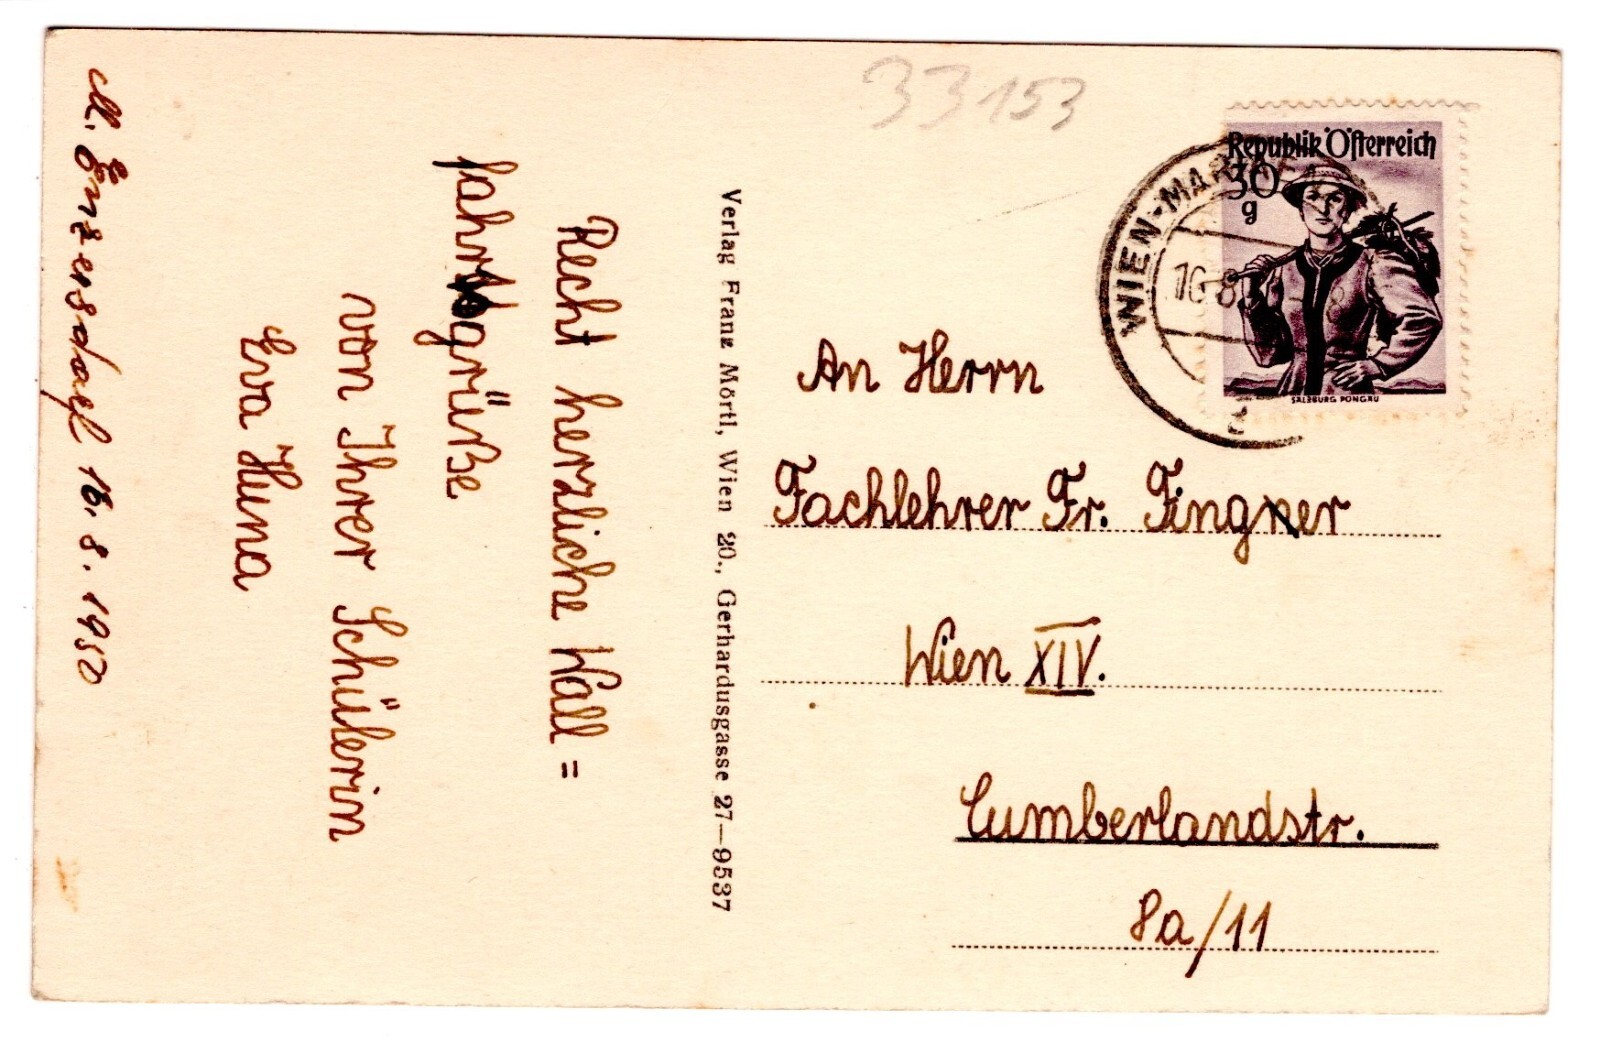 M. Enzersdorf 16. 8. 1950
Recht herzliche Wall =
fahrtsgrüße
von Ihrer Schülerin
Eva Huna
Verlag Franz Mörtl, Wien 20., Gerhardusgasse 27—9537
33153
Republik Österreich
30
g
SALZBURG PONGAU
WIEN-MAR
16. 8
2
An Herrn
Fachlehrer Fr. Fingner
Wien XIV.
Cumberlandstr.
8a/11